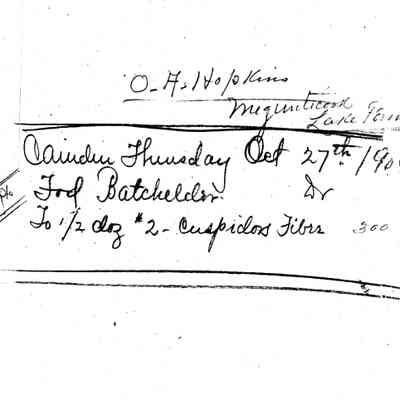 O. A. Hopkins
Megunticook
Lake
Camden Thursday Oct 27th/190
Fred Batchelder Dr
To 1/2 doz #2 - Cuspidors Fibre 300